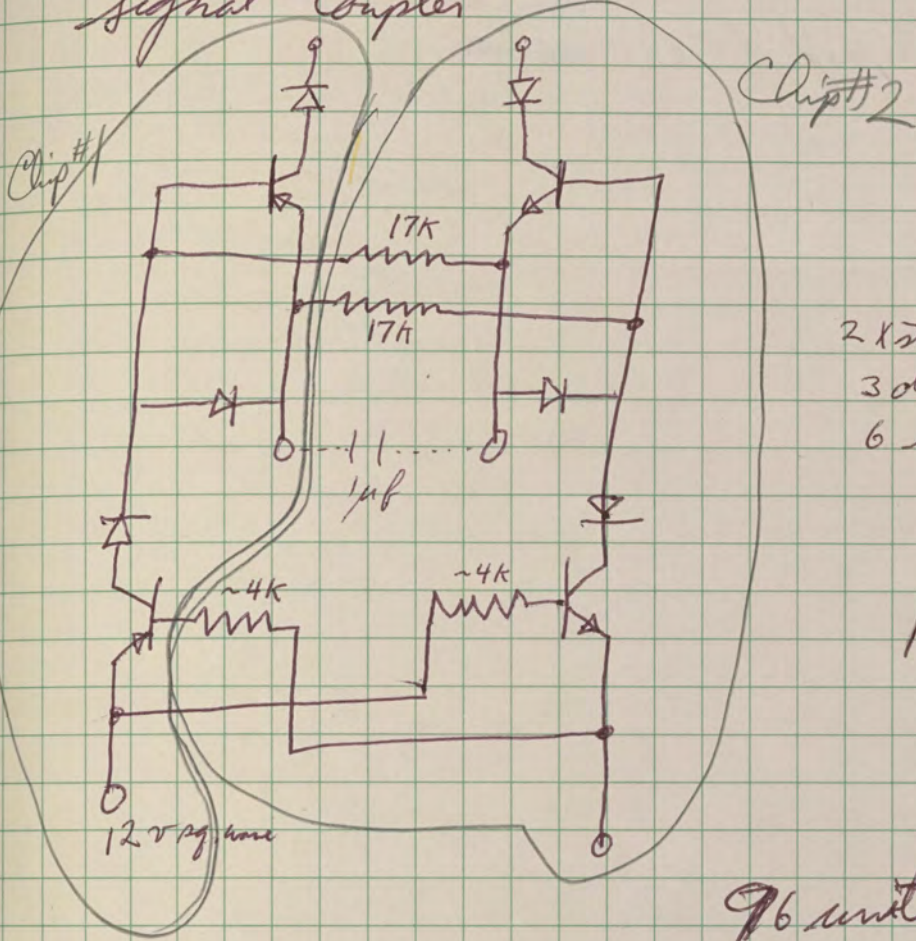 signal coupler
Chip #1
Chip #2
17K
17K
2 x
3 o
6
1μf
~4K
~4K
12 v sq. wave
96 unit